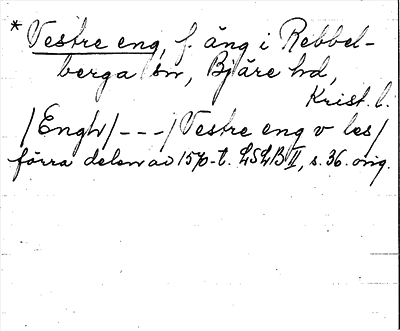 * Vestre eng, f. äng i Rebbel-
berga sn, Bjäre hd,
Krist. l.
/Engh/ - - - / Vestre eng v les/
förra delen av 1570-t. LSLB II, s. 36. orig.